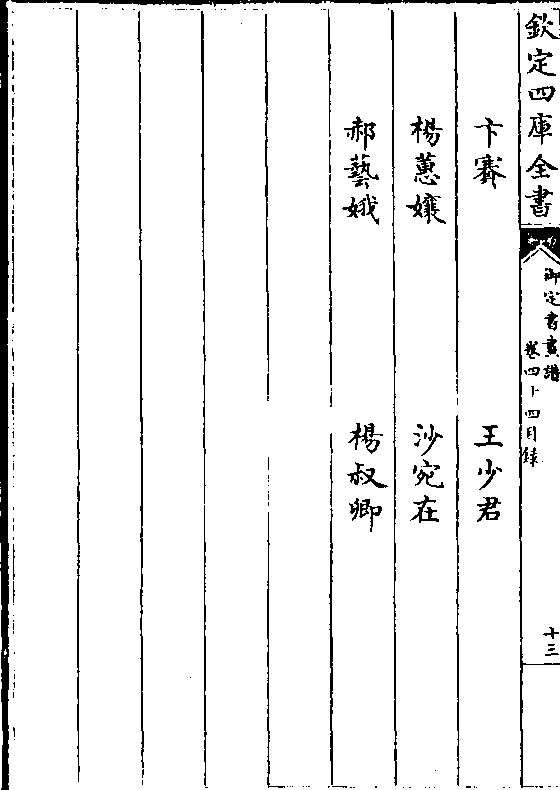 欽定四庫全書
御定書畫譜
卷四十四目錄
十三
卞賽 王少君
楊蕙孃 沙宛在
郝藝娥 楊叔卿